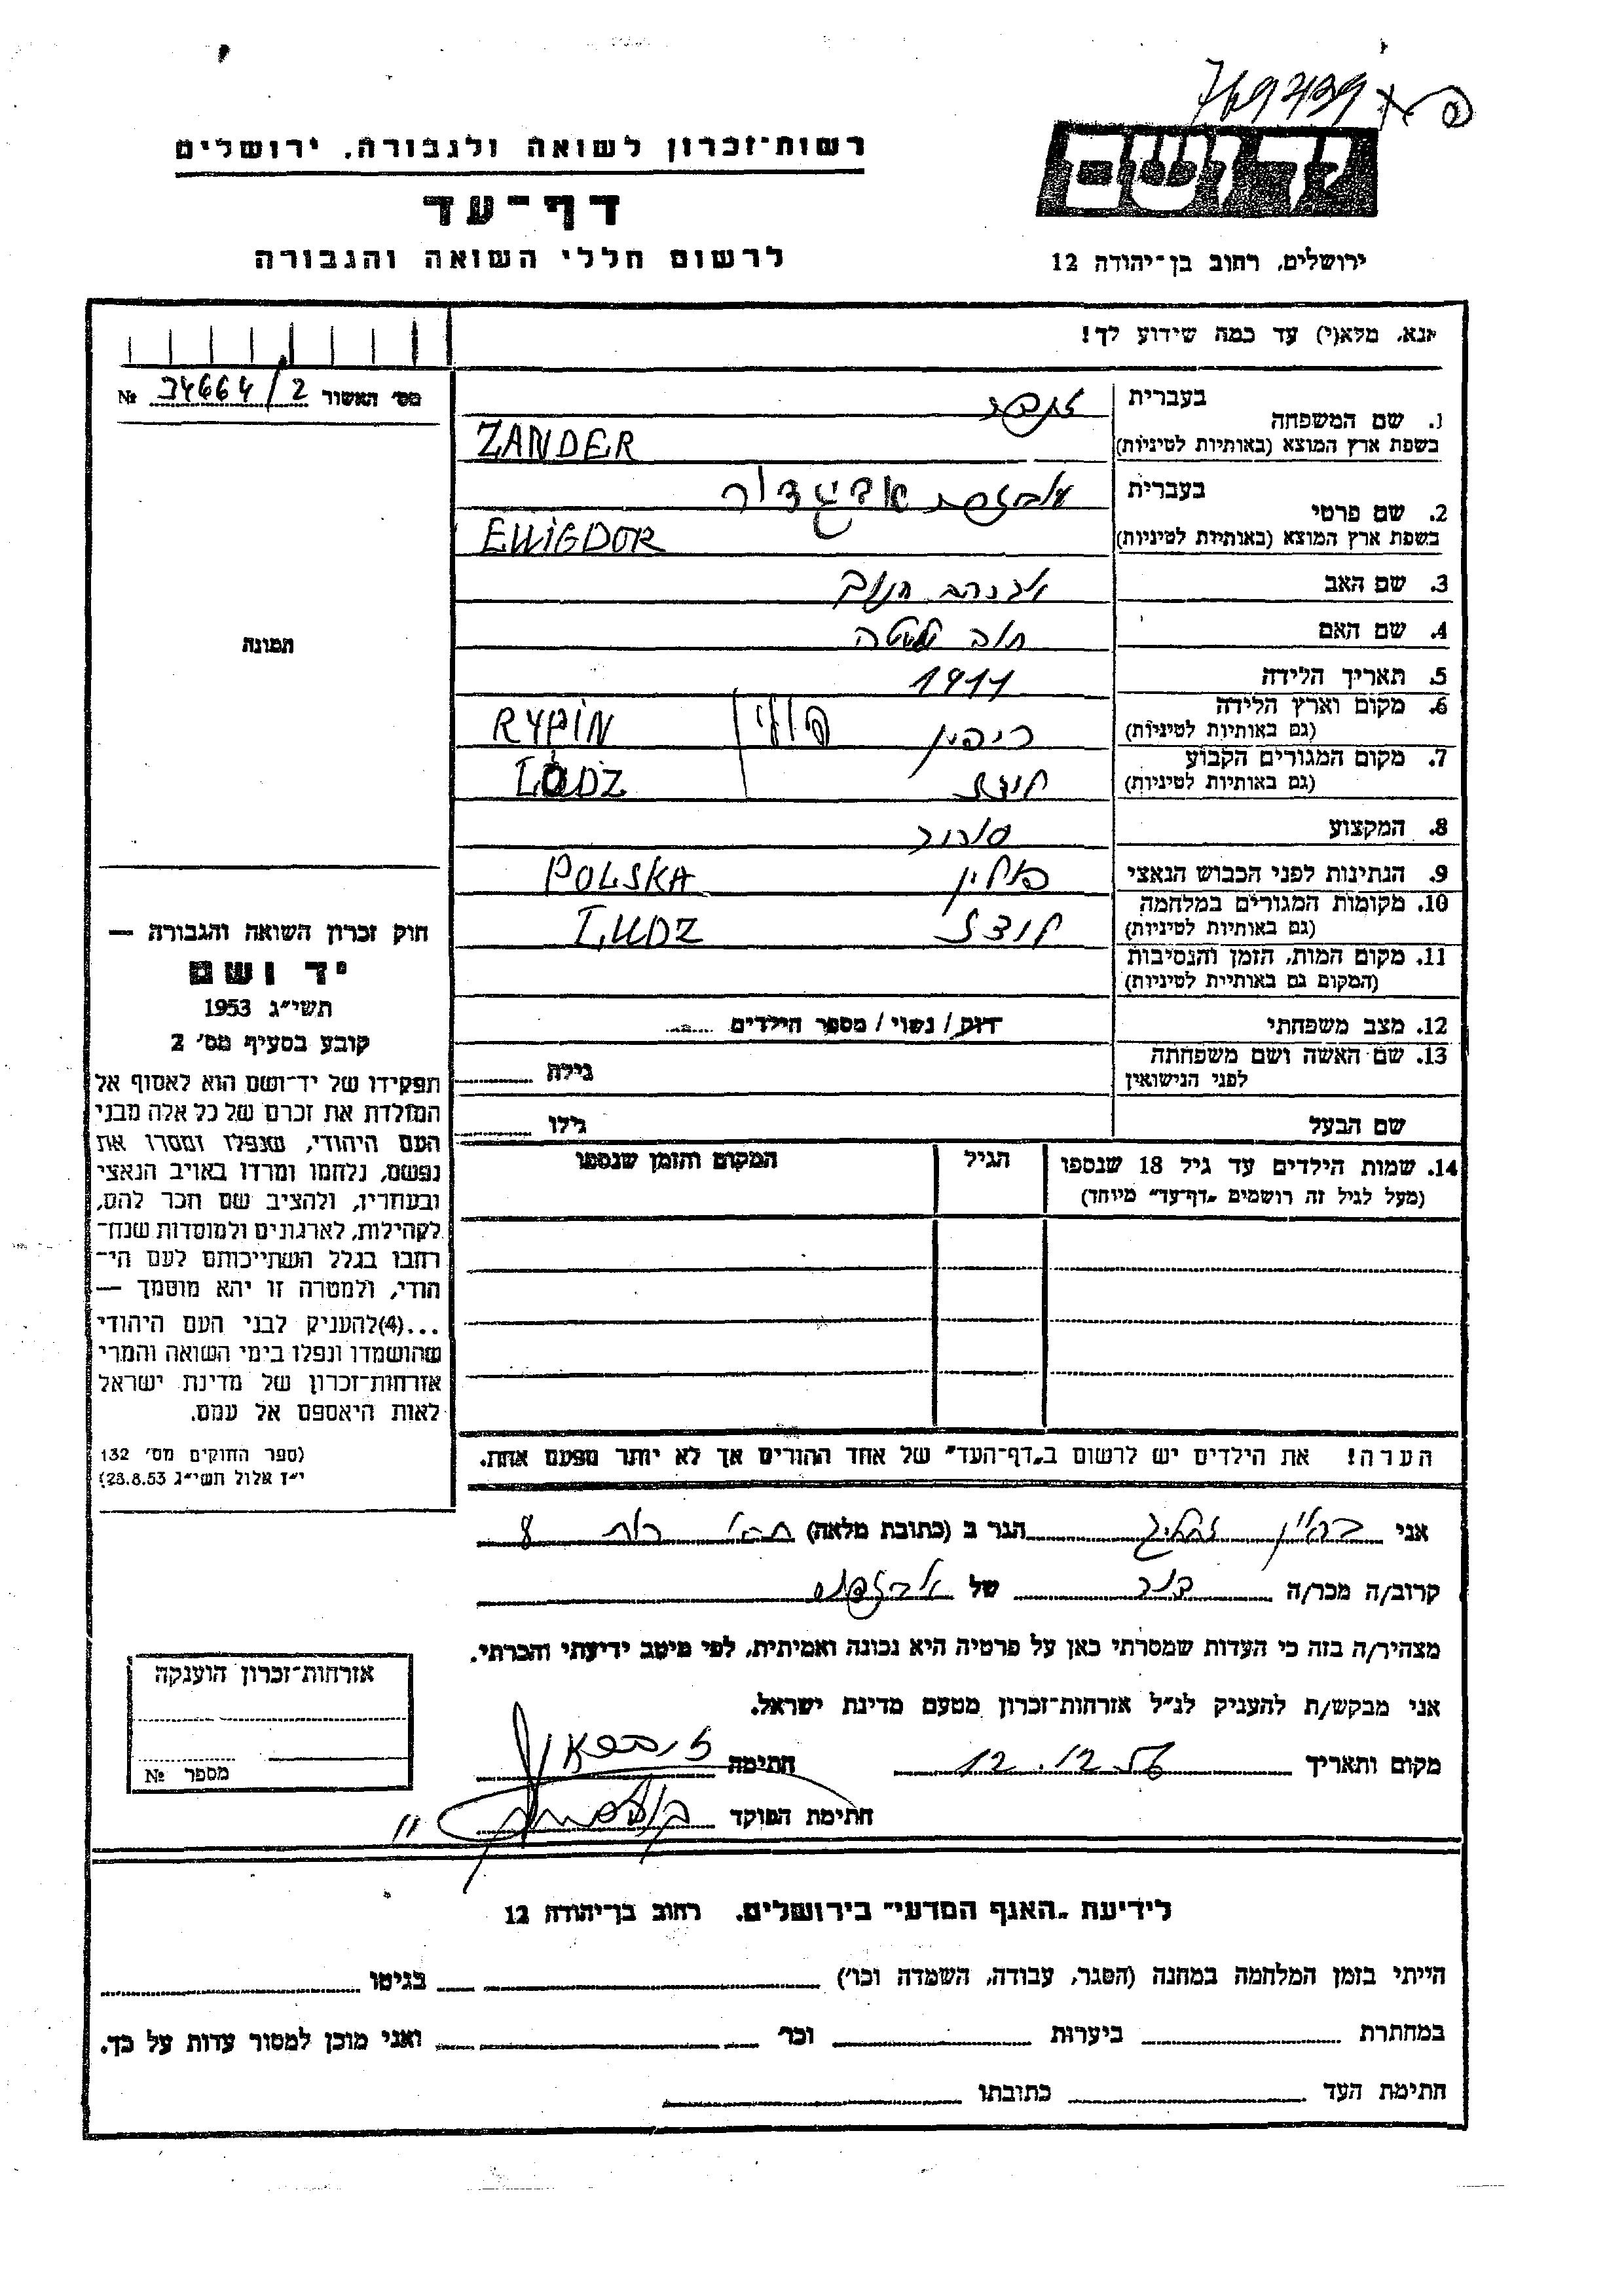 769439
רשות־זכרון לשואה ולגבורה, ירושלים
דף־עד
לרשום חללי השואה והגבורה
ירושלים, רחוב בן־יהודה 12
אנא, מלא(י) עד כמה שידוע לך!
מס׳ האשור 34664/2 №
1. שם המשפחה
בעברית
בשפת ארץ המוצא (באותיות לטיניות) ZANDER
2. שם פרטי
בעברית אביגדור
בשפת ארץ המוצא (באותיות לטיניות) EWIGDOR
3. שם האב אברהם
4. שם האם
5. תאריך הלידה 1911
6. מקום וארץ הלידה
(גם באותיות לטיניות) ריפין פולין RYPIN
7. מקום המגורים הקבוע
(גם באותיות לטיניות) לודז LODZ
8. המקצוע סוחר
9. הנתינות לפני הכבוש הנאצי פולין POLSKA
10. מקומות המגורים במלחמה
(גם באותיות לטיניות) לודז LUDZ
11. מקום המות, הזמן והנסיבות
(המקום גם באותיית לטיניות)
12. מצב משפחתי רוק/ נשוי/ מספר הילדים
13. שם האשה ושם משפחתה
לפני הנישואין גילה
שם הבעל גילו
14. שמות הילדים עד גיל 18 שנספו
(מעל לגיל זה רושמים „דף־עד״ מיוחד)
הגיל
המקום והזמן שנספו
תמונה
חוק זכרון השואה והגבורה —
יד ושם
תשי״ג 1953
קובע בסעיף מס׳ 2
תפקידו של יד־ושם הוא לאסוף אל
המולדת את זכרם של כל אלה מבני
העם היהודי, שנפלו ומסרו את
נפשם, נלחמו ומרדו באויב הנאצי
ובעוזריו, ולהציב שם וזכר להם,
לקהילות, לארגונים ולמוסדות שנח־
רבו בגלל השתייכותם לעם הי־
הודי, ולמטרה זו יהא מוסמך —
...(4)להעניק לבני העם היהודי
שהושמדו ונפלו בימי השואה והמרי
אזרחות־זכרון של מדינת ישראל
לאות היאספם אל עמם.
(ספר החוקים מס׳ 132
י״ז אלול תשי״ג 28.8.53)
הערה! את הילדים יש לרשום ב„דף־העד״ של אחד ההורים אך לא יותר מפעם אחת.
אני הגר ב (כתובת מלאה) 8
קרוב/ה מכר/ה של
מצהיר/ה בזה כי העדות שמסרתי כאן על פרטיה היא נכונה ואמיתית, לפי מיטב ידיעתי והכרתי.
אני מבקש/ת להעניק לנ״ל אזרחות־זכרון מטעם מדינת ישראל.
מקום ותאריך 12.12.56 חתימה
חתימת הפוקד
אזרחות־זכרון הוענקה
מספר №
לידיעת „האגף המדעי״ בירושלים, רחוב בן־יהודה 12
הייתי בזמן המלחמה במחנה (הסגר, עבודה, השמדה וכו׳) בגיטו
במחתרת ביערות וכו׳ ואני מוכן למסור עדות על כך.
חתימת העד כתובתו